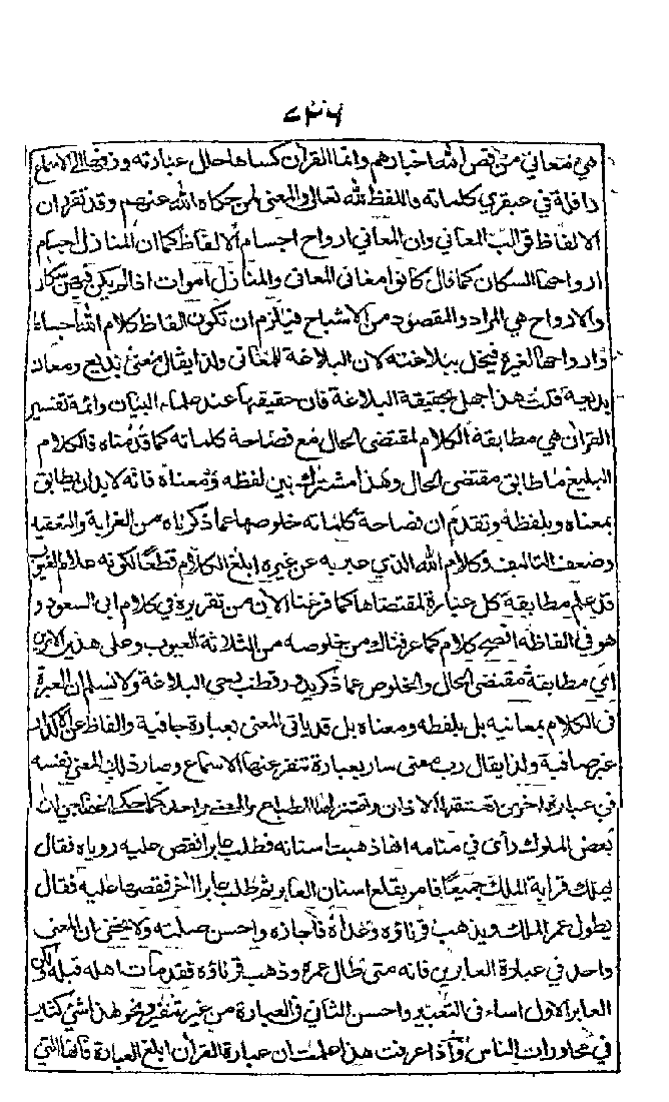 ٧٣٦
هي معاني من قص الله اخبارهم وانما القرآن كساها حلل عبارته وزفها الى الاسماع
رافلة في عبقري كلماته واللفظ لله تعالى والمعنى لمن حكاه الله عنهم وقد تقرر ان
الالفاظ قوالب المعاني وان المعاني ارواح اجسام الالفاظ كما ان المنازل اجسام
ارواحها السكان كما قال كانوا مغاني المعاني والمنازل اموات اذا لم يكن فيهن سكان
والارواح هي المراد والمقصود من الاشباح فيلزم ان تكون الفاظ كلام الله اجسادا
وارواحها لغيره فيخل ببلاغته لان البلاغة للمعاني ولذا يقال معنى بديع ومعان
بديعة قلت هذا جهل بحقيقة البلاغة فان حقيقتها عند علماء البيان وائمة تفسير
القرآن هي مطابقة الكلام لمقتضى الحال مع فصاحة كلماته كما قدمناه فالكلام
البليغ ما طابق مقتضى الحال وهذا مشترك بين لفظه ومعناه فانه لابد ان يطابق
بمعناه وبلفظه وتقدم ان فصاحة كلماته خلوصها عما ذكرناه من الغرابة والتعقيد
وضعف التاليف وكلام الله الذي عبر به عن غيره ابلغ الكلام قطعا لكونه علام الغيوب
قد علم مطابقة كل عبارة لمقتضاها كما فرغنا الآن من تقريره في كلام ابي السعود و
هو في الفاظه افصح كلام كما عرفناك من خلوصه من الثلاثة العيوب وعلى هذين الامرين
اي مطابقة مقتضى الحال والخلوص عما ذكر يدور قطب رحى البلاغة ولا نسلم ان العبرة
في الكلام بمعانيه بل بلفظه ومعناه بل قد ياتي المعنى بعبارة جافية والفاظ عن الاكدار
غير صافية ولذا يقال رب معنى سار بعبارة تنفر عنها الاسماع وصار ذلك المعنى نفسه
في عبارة اخرى تعشقها الاذان وتهتز لها الطباع والمعنى واحد كما حكى الخفاجي ان
بعض الملوك رأى في منامه انها ذهبت اسنانه فطلب عابرا فقص عليه رؤياه فقال
يهلك قرابة الملك جميعا فامر بقلع اسنان العابر ثم طلب عابرا آخر فقصها عليه فقال
يطول عمر الملك ويذهب قرناؤه وعداه فاجازه واحسن صلته ولا يخفى ان المعنى
واحد في عبارة العابرين فانه متى طال عمره وذهب قرناؤه فقد مات اهله قبله لكن
العابر الاول اساء في التعبير واحسن الثاني في العبارة من غير تنفير ونحو هذا شئ كثير
في محاورات الناس واذا عرفت هذا علمت ان عبارة القرآن ابلغ العبارة فانها التي